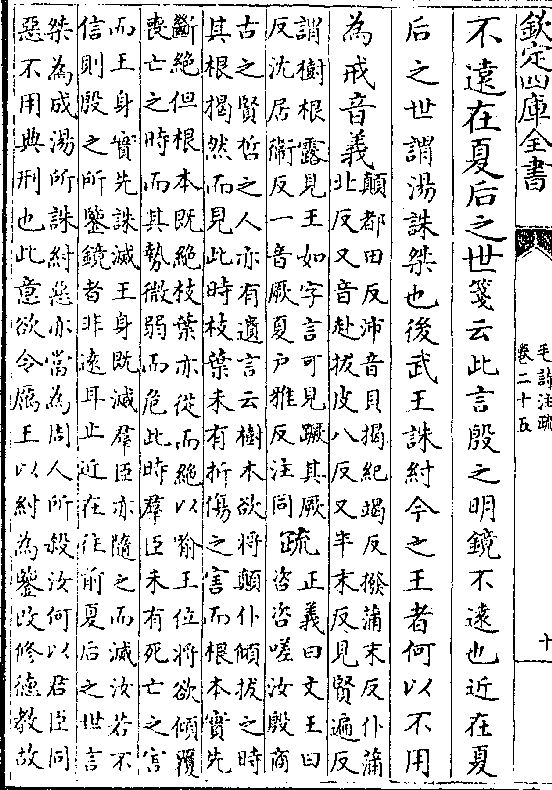 欽定四庫全書
毛詩注疏
卷二十五
十
不遠在夏后之世箋云此言殷之明鏡不遠也近在夏
后之世謂湯誅桀也後武王誅紂今之王者何以不用
為戒音義
顛都田反沛音貝揭紀竭反撥蒲末反仆蒲
北反又音赴拔皮八反又半末反見賢遍反
謂樹根露見王如字言可見蹶其厥
反沈居衛反一音厥夏户雅反注同
疏
正義曰文王曰
咨咨嗟汝殷商
古之賢哲之人亦有遺言云樹木欲將顛仆傾拔之時
其根揭然而見此時枝葉未有折傷之害而根本實先
斷絕但根本既絕枝葉亦從而絕以喻王位將欲傾覆
喪亡之時而其勢微弱而危此時羣臣未有死亡之害
而王身實先誅滅王身既滅羣臣亦隨之而滅汝若不
信則殷之所鑒鏡者非遠耳止近在往前夏后之世言
桀為成湯所誅紂惡亦當為周人所殺汝何以君臣同
惡不用典刑也此意欲令厲王以紂為鑒改修德教故